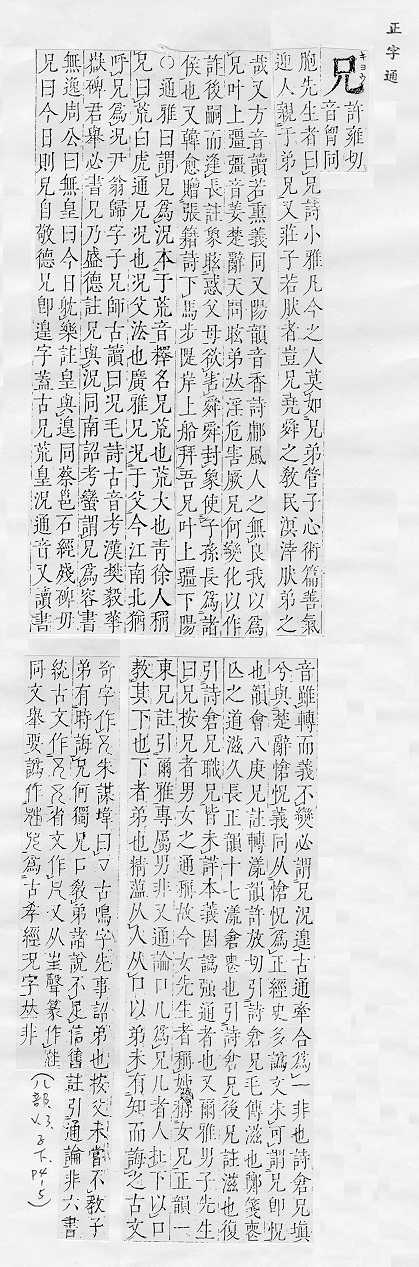 正字通
キョウ
兄 許雍切
音胷同
胞先生者曰兄詩小雅凡今之人莫如兄弟管子心術篇善氣
迎人親于弟兄又莊子若肰者豈兄堯舜之敎民溟涬肰弟之
哉又方音讀若熏義同又陽韻音香詩鄘風人之無良我以爲
兄叶上彊彊音姜楚辭天問眩弟𠀤淫危害厥兄何變化以作
詐後嗣而逢長註象眩惑父母欲害舜舜封象使子孫長爲諸
侯也又韓愈贈張籍詩下馬步隄岸上船拜吾兄叶上疆下陽
○通雅曰謂兄爲況本于荒音釋名兄荒也荒大也靑徐人稱
兄曰荒白虎通兄況也況父法也廣雅兄況于父今江南北猶
呼兄爲況尹翁歸字子兄師古讀曰況毛詩古音考漢樊毅華
嶽碑君舉必書兄乃盛德註兄與況同南詔考蠻謂兄爲容書
無逸周公曰無皇曰今日躭樂註皇與遑同蔡邕石經殘碑毋
兄曰今日則兄自敬德兄卽遑字蓋古兄荒皇況通音又讀書
音雖轉而義不變必謂兄況遑古通牽合爲一非也詩倉兄塡
兮與楚辭愴怳義同从愴怳爲正經史多譌文未可謂兄卽怳
也韻會八庚兄註轉漾韻許放切引詩倉兄毛傳滋也鄭箋喪
亾之道滋久長正韻十七漾倉喪也引詩倉兄後兄註滋也復
引詩倉兄職兄皆未詳本義因譌强通者也又爾雅男子先生
曰兄按兄者男女之通稱故今女先生者稱姊稱女兄正韻一
東兄註引爾雅專屬男非又通論口儿爲兄儿者人在下以口
教其下也下者弟也精蘊从人从口以弟未有知而誨之古文
奇字作朱謀㙔曰古鳴字先事詔弟也按父未嘗不敎子
弟有時誨兄何獨兄口敎弟諸說不足信舊註引通論非六書
統古文作省文作又从聲篆作
同文舉要譌作爲古孝經況字𠀤非